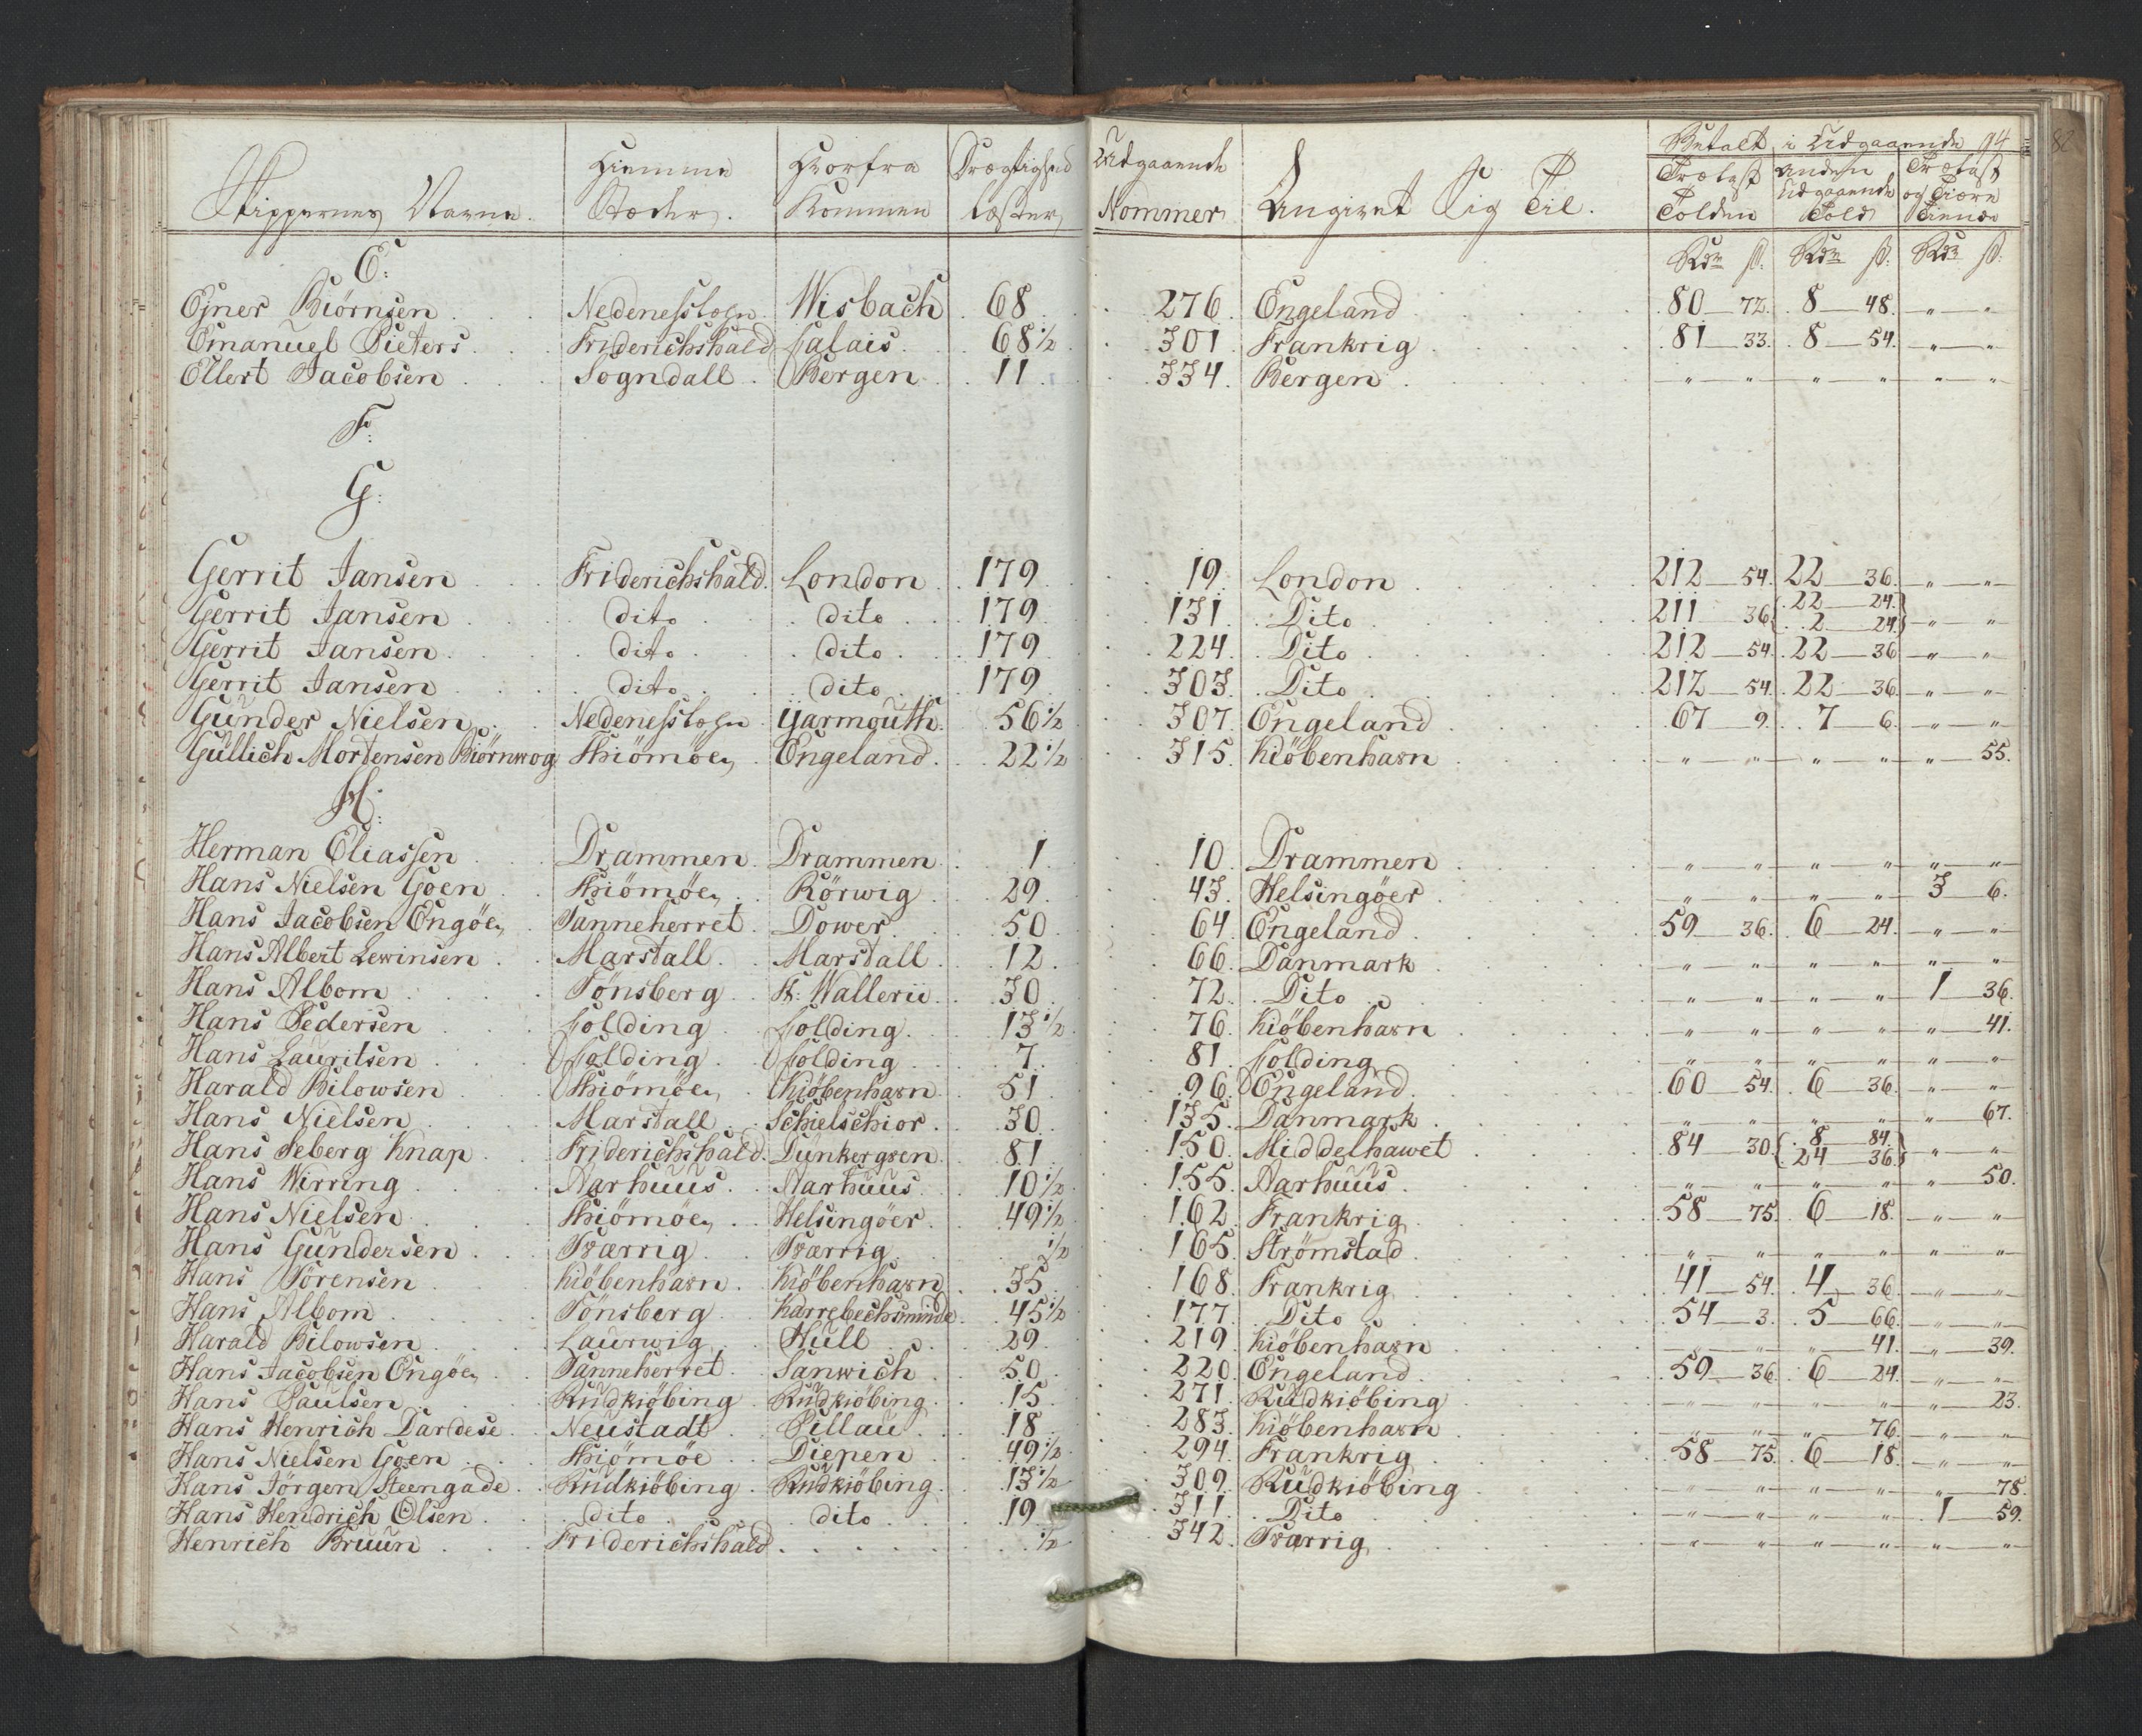 Skippernes Navne. Hiemme Stæder. Hvorfra Kommen Drægtighed Læster Udgaaende Nommer Angivet Sig Til. Betalt i Udgaaende 94 82
Trælast Tolden Anden Udgaaende Told Trælast og Tiære Tiende
Rdr ß. Rdr ß. Rdr ß.
E:
Ejner Biörnsen Nedenesslehn Wisbach 68 276. Engeland 80 72. 8 48. " "
Emanuel Pieters Friderichshald Calais 68½ 301. Frankrig 81 33. 8 54. " "
Ellert Jacobsen Sogndall Bergen 11 334. Bergen " " " " " "
F:
G:
Gerrit Jansen Friderichshald London 179 19. London 212 54. 22 36. " "
Gerrit Jansen dito dito 179 131. Dito 211 36 { 22 24. 2 24. } " "
Gerrit Jansen dito dito 179 224. Dito 212 54. 22 36 " "
Gerrit Jansen dito dito 179 303. Dito 212 54. 22 36. " "
Gunder Nielsen Nedenesslehn Yarmouth 56½ 307. Engeland 67 9. 7 6. " "
Güllich Mortensen Biörnwog Thiömöe Engeland 22½ 315. Kiöbenhavn " " " " " 55.
H:
Herman Eliassen Drammen Drammen 1 10. Drammen " " " " " "
Hans Nielsen Goen Thiömöe Rörwig 29 43. Helsingöer " " " " 3 6.
Hans Jacobsen Engöe Sanneherret Dower 50 64. Engeland 59 36. 6 24. " "
Hans Albert Lewinsen Marstall Marstall 12 66. Danmark " " " " " "
Hans Albom Tönsberg St: Wallerii 30 72. Dito " " " " 1 36.
Hans Pedersen Colding Colding 13½ 76. Kiöbenhavn " " " " " 41.
Hans Lauritsen Colding Colding 7 81. Colding " " " " " "
Harald Bilowsen Thiömöe Kiöbenhavn 51 96. Engeland 60 54. 6 36. " "
Hans Nielsen Marstall Schielschior 30 135. Danmark " " " " " 67.
Hans Seberg Knap Friderichshald Dünkergsen 81 150. Middelhawet 84 30 { 8 84. 24 36. } " "
Hans Wirring Aarhuus Aarhuus 10½ 155. Aarhuus " " " " " 50.
Hans Nielsen Thiömöe Helsingöer 49½ 162. Frankrig 58 75. 6 18. " "
Hans Gundersen Svarrig Svarrig ½ 165. Strømstad " " " " " "
Hans Sörensen Kiöbenhavn Kiöbenhavn 35 168. Frankrig 41 54. 4 36. " "
Hans Albom Tönsberg Karrebechsminde 45½ 177. Dito 54 3. 5 66. " "
Harald Bilowsen Laurwig Hull 29 219. Kiöbenhavn " " " 41. " 39.
Hans Jacobsen Engöe Sanneherret Sanwich 50 220. Engeland 59 36. 6 24. " "
Hans Paulsen Rudkiöbing Rudkiöbing 15 271. Rudkiöbing " " " " " 23.
Hans Henrich Dardese Neustadt Pillau 18 283. Kiöbenhavn " " " 76. " "
Hans Nielsen Goen Thiömöe Diepen 49½ 294. Frankrig 58 75. 6 18. " "
Hans Jörgen Steengade Rudkiöbing Rudkiöbing 13½ 309. Rudkiöbing " " " " " 78.
Hans Hendrich Olsen dito dito 19 311. Dito " " " " 1 59.
Henrich Bruun Friderichshald ½ 342. Svarrig " " " " " "